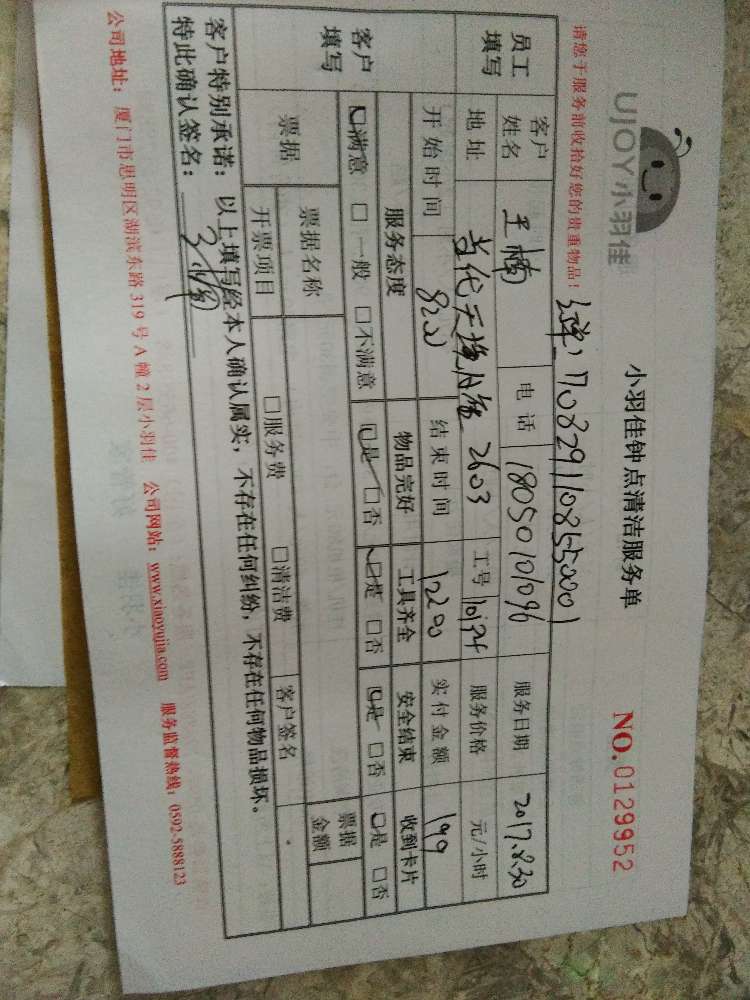 UJOY小羽佳
小羽佳钟点清洁服务单
NO.0129952
请您于服务前收拾好您的贵重物品！
1708291108550001
员工填写
客户姓名 王楠 电话 18050101096 服务日期 2017.8.30
地址 2603 工号 服务价格 元/小时
开始时间 结束时间 12:00 实付金额 199
客户填写
服务态度 物品完好 工具齐全 安全结束 收到卡片
□满意 □一般 □不满意 □是 □否 □是 □否 □是 □否 □是 □否
票据
票据名称 □服务费 □清洁费 客户签名 票据金额
开票项目
客户特别承诺：以上填写经本人确认属实，不存在任何纠纷，不存在任何物品损坏。
特此确认签名：
公司地址：厦门市思明区湖滨东路319号A幢2层小羽佳 公司网站：www.xiaoyujia.com 服务监督热线：0592-5888123